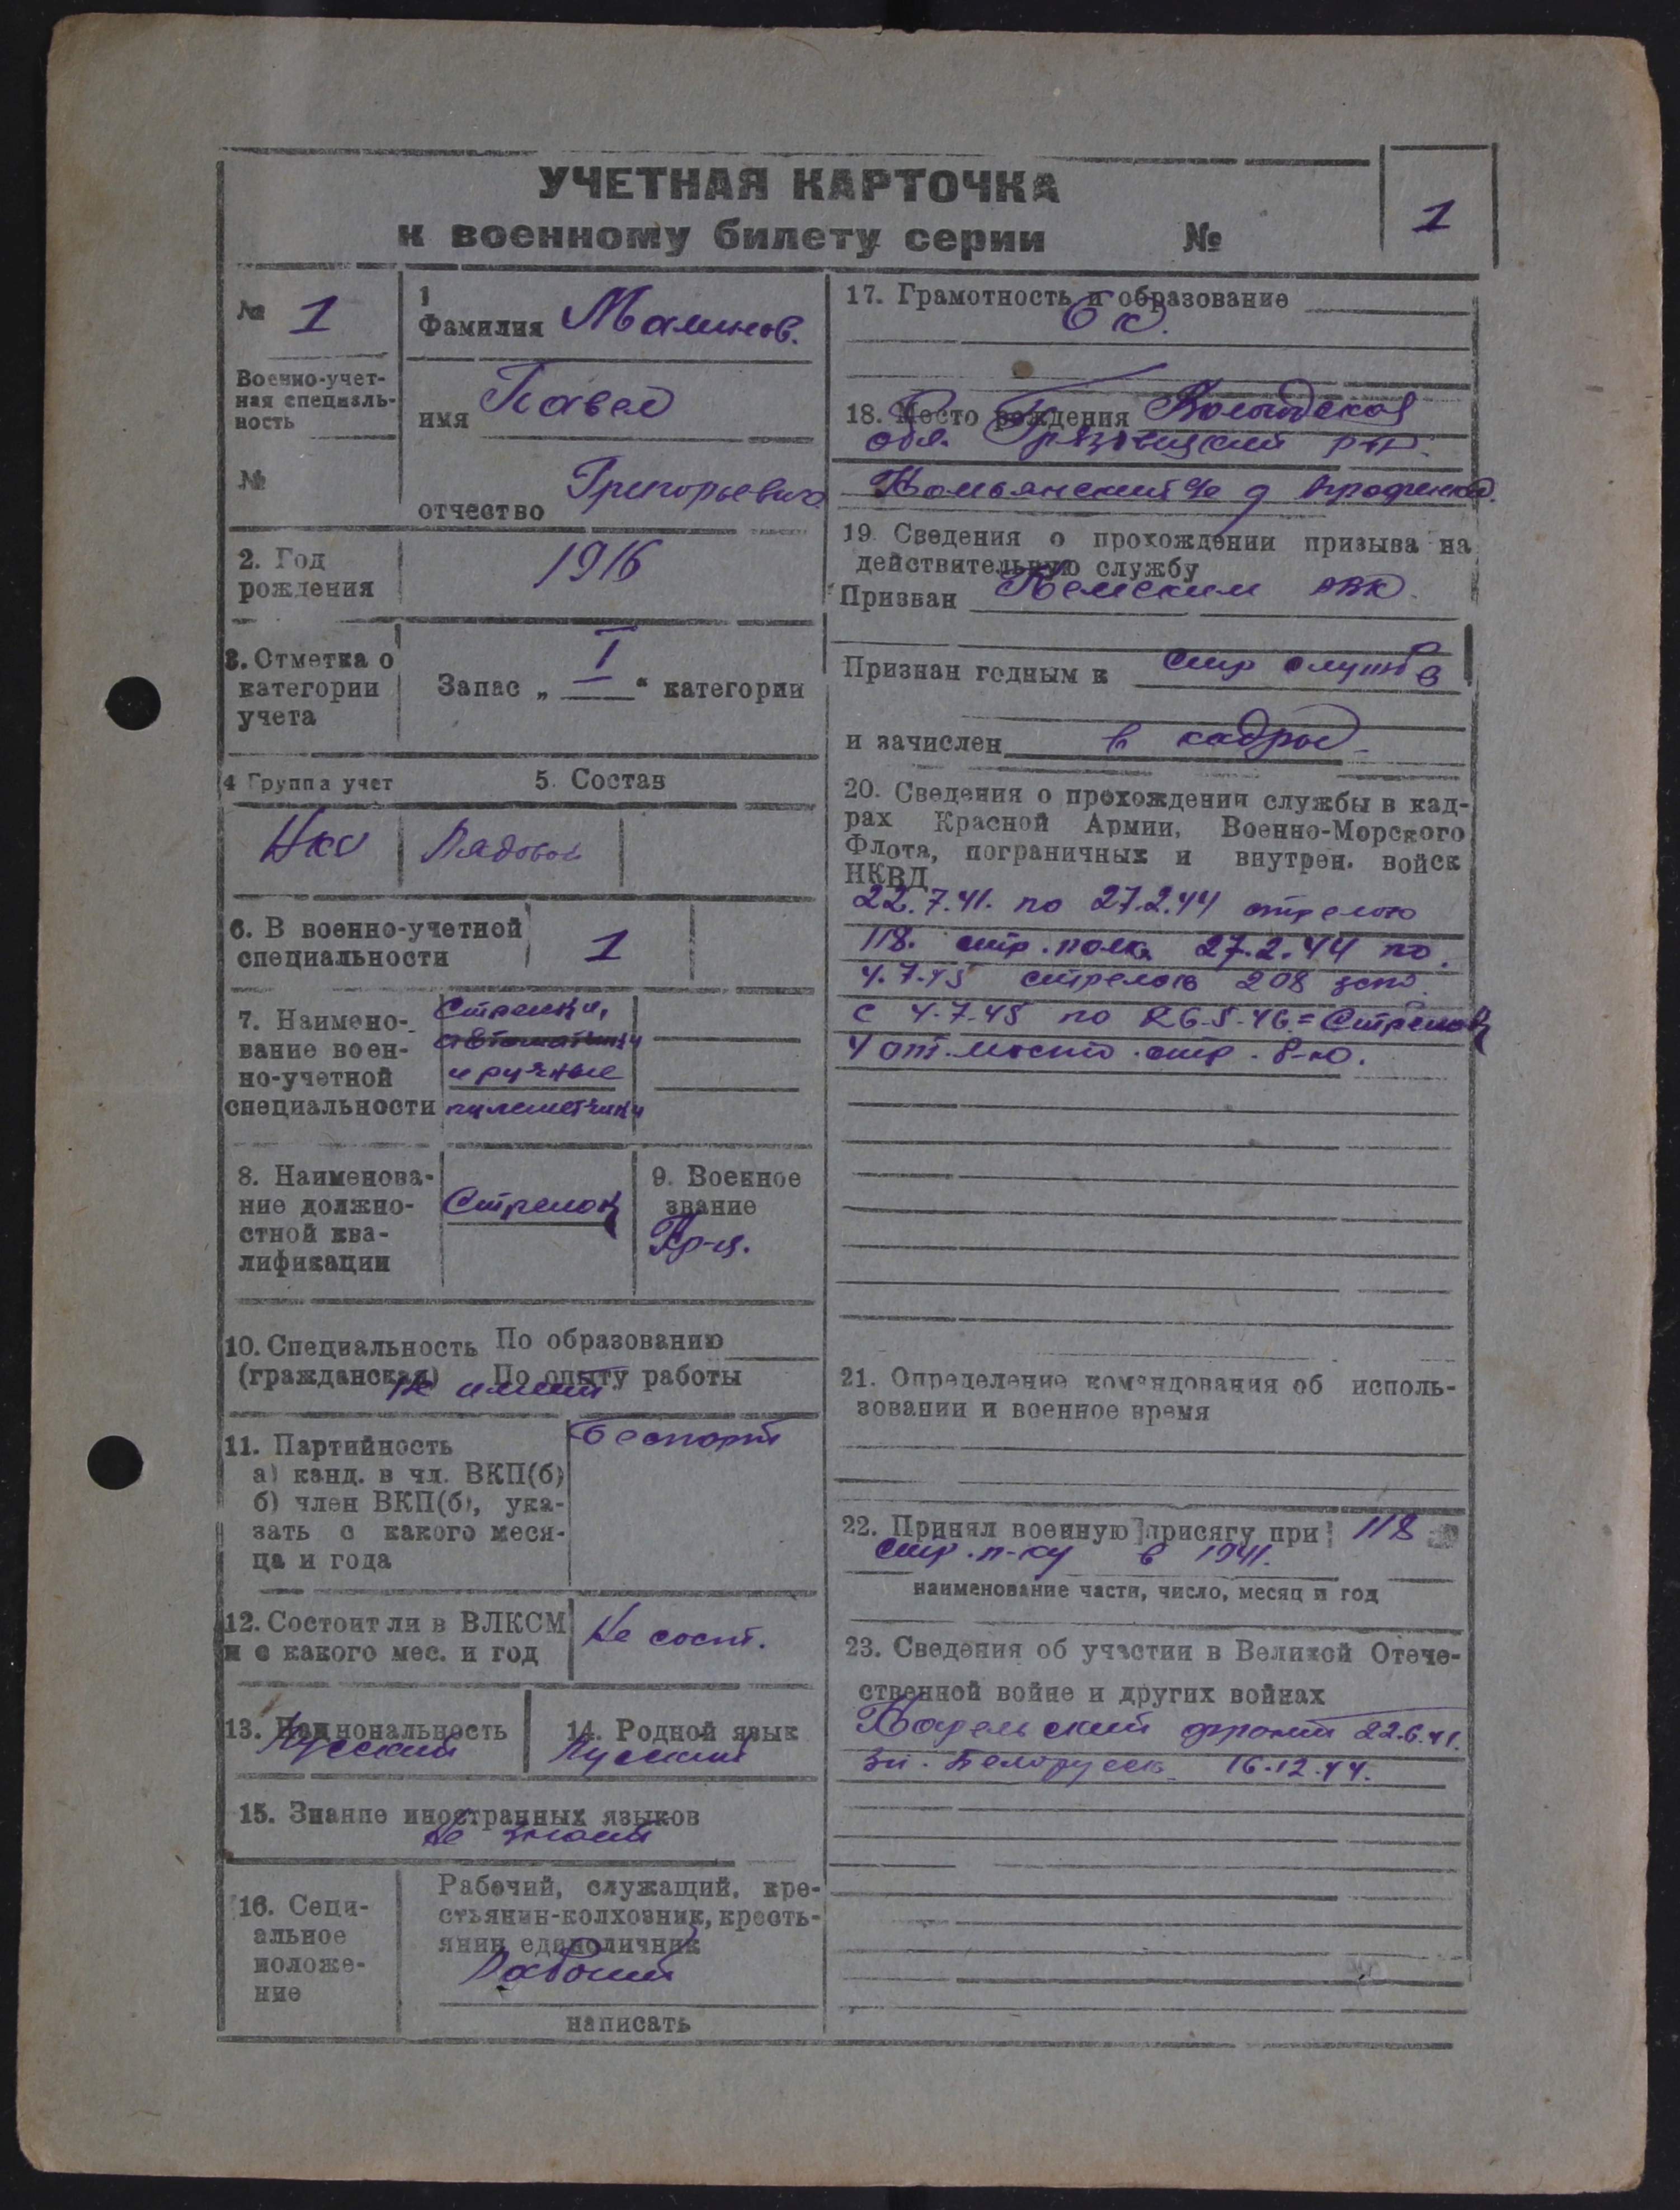 УЧЕТНАЯ КАРТОЧКА
к военному билету серии №
1
№ 1
Военно-учет-
ная специаль-
ность
№
1
Фамилия Малинов.
имя Павел
отчество Григорьевич
2. Год
рождения
1916
3. Отметка о
категории
учета
Запас „ I “ категории
4 Группа учет
5. Состав
Рядовой
6. В военно-учетной
специальности
1
7. Наимено-
вание воен-
но-учетной
специальности
Стрелки,
автоматчики
и ручные
пулеметчики
8. Наименова-
ние должно-
стной ква-
лификации
Стрелок
9. Военное
звание
Кр-ц.
10. Специальность По образованию
(гражданская) По опыту работы
не имеет
11. Партийность
а) канд. в чл. ВКП(б)
б) член ВКП(б), ука-
зать с какого меся-
ца и года
Беспарт
12. Состоит ли в ВЛКСМ
и с какого мес. и год
Не сост.
13. Национальность
Русский
14. Родной язык
Русский
15. Знание иностранных языков
не знает
16. Соци-
альное
положе-
ние
Рабочий, служащий, кре-
стьянин-колхозник, кресть-
янин единоличник
Рабочий
написать
17. Грамотность и образование
6 кл.
18. Место рождения Вологодская
обл. Грязовецкий р-н.
19. Сведения о прохождении призыва на
действительную службу
Призван Кемским РВК.
Признан годным к стр службе
и зачислен в кадры
20. Сведения о прохождении службы в кад-
рах Красной Армии, Военно-Морского
Флота, пограничных и внутрен. войск
НКВД
22.7.41. по 27.2.44 стрелок
118. стр. полка 27.2.44 по
4.7.45 стрелок 208 зсп.
с 4.7.45 по 26.5.46 = Стрелок
4 от. местн. стр. р-ы.
21. Определение командования об исполь-
зовании и военное время
22. Принял военную присягу при 118
стр. п-ку в 1941.
наименование части, число, месяц и год
23. Сведения об участии в Великой Отече-
ственной войне и других войнах
Карельский фронт 22.6.41.
Белорусск 16.12.44.